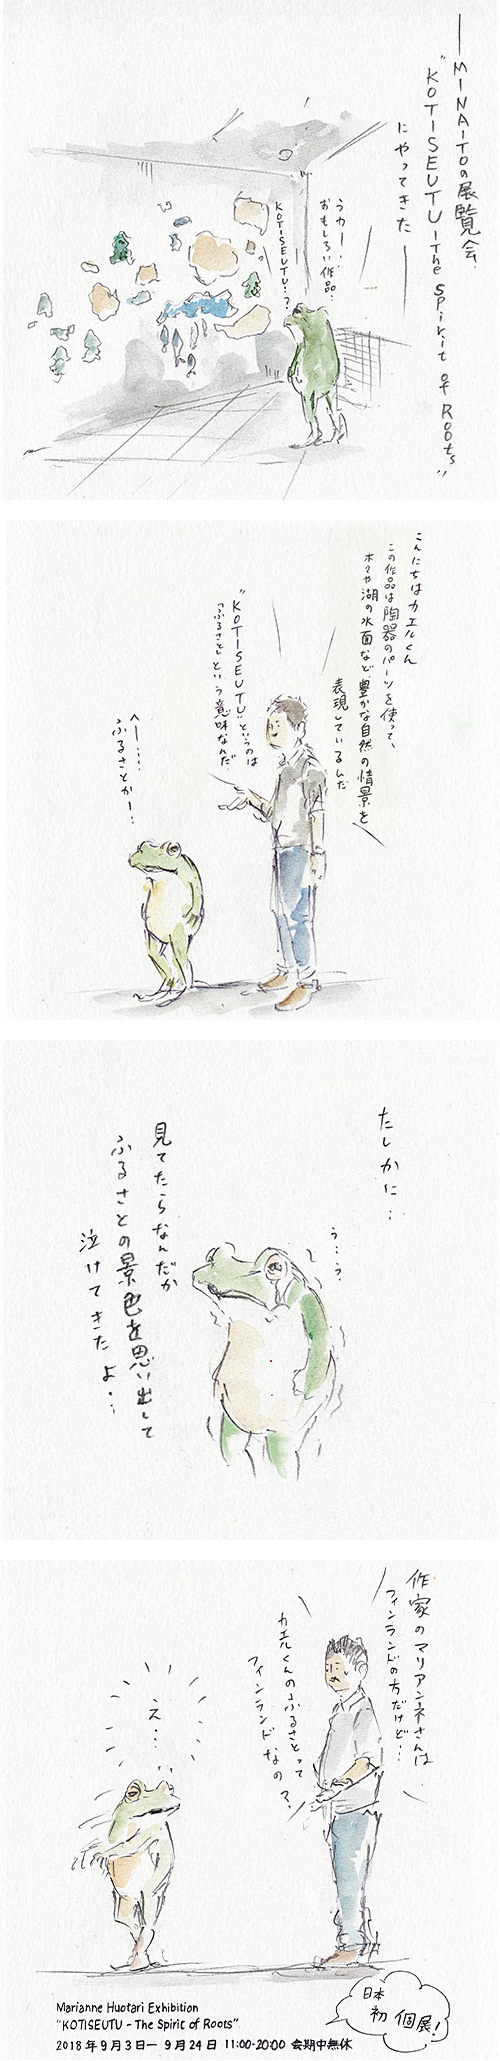 MINAITOの展覧会
"KOTISEUTU-The Spirit of Roots"
にやってきた
うわー…
おもしろい作品…
KOTISEUTU…?
こんにちはカエルくん
この作品は陶器のパーツを使って、
木々や湖の水面など豊かな自然の情景を
表現しているんだ
"KOTISEUTU"というのは
「ふるさと」という意味なんだ
へー…
ふるさとかー…
たしかに…
う…う…
見てたらなんだか
ふるさとの景色を思い出して
泣けてきたよ…
作家のマリアンネさんは
フィンランドの方だけど…
カエルくんのふるさとって
フィンランドなの?
え…
日本
初個展!
Marianne Huotari Exhibition
"KOTISEUTU - The Spirit of Roots"
2018年9月3日ー9月24日 11:00-20:00 会期中無休